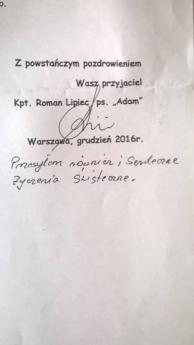 o.
Z powstańczym pozdrowieniem
Wasz przyjaciel
Kpt. Roman Lipiec ps. „Adam”
Warszawa, grudzień 2016r.
Przesyłam również i Serdeczne
Życzenia Świąteczne.